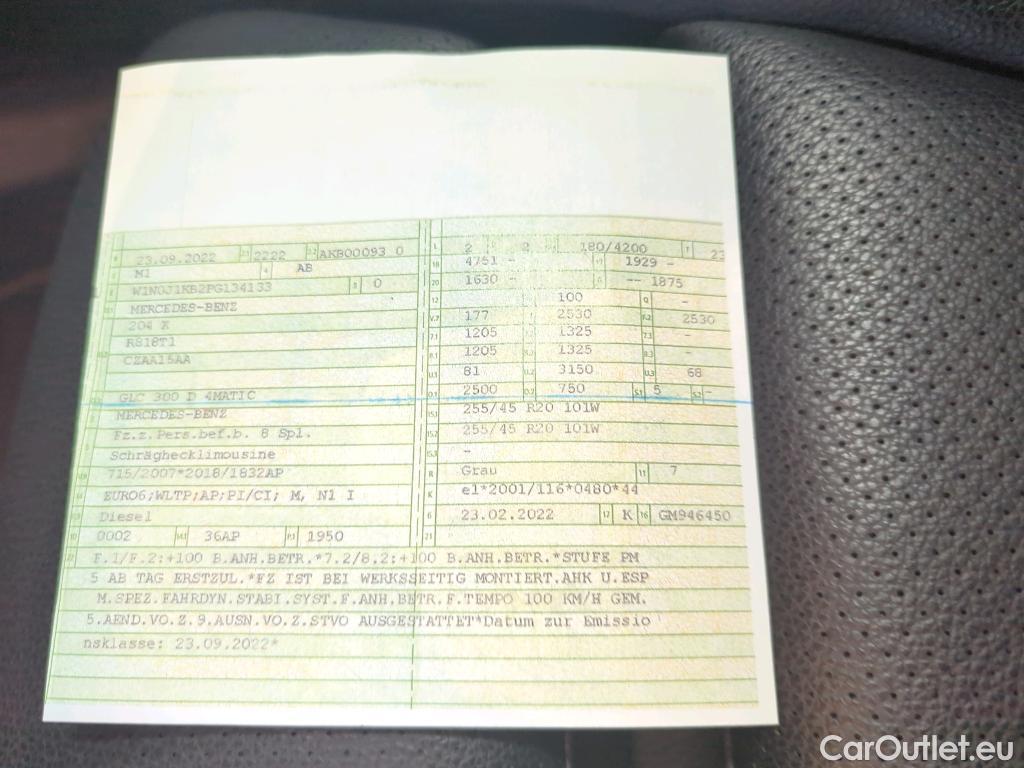 23.09.2022 2222 AKB00093 0
M1 AB
W1N0J1KB2PG134133 0
MERCEDES-BENZ
204 X
R818T1
CZAA15AA
GLC 300 D 4MATIC
MERCEDES-BENZ
Fz.z.Pers.bef.b. 8 Spl.
Schräghecklimousine
715/2007*2018/1832AP
EURO6;WLTP;AP;PI/CI; M, N1 I
Diesel
0002 36AP 1950
2 2 180/4200 23
4751 - 1929 -
1630 - -- 1875
100 -
177 2530 2530
1205 1325 -
1205 1325 -
81 3150 68
2500 750 5 -
255/45 R20 101W
255/45 R20 101W
-
Grau 7
e1*2001/116*0480*44
23.02.2022 K GM946450
F.1/F.2:+100 B.ANH.BETR.*7.2/8.2:+100 B.ANH.BETR.*STUFE PM
5 AB TAG ERSTZUL.*FZ IST BEI WERKSSEITIG MONTIERT.AHK U.ESP
M.SPEZ.FAHRDYN.STABI.SYST.F.ANH.BETR.F.TEMPO 100 KM/H GEM.
5.AEND.VO.Z.9.AUSN.VO.Z.STVO AUSGESTATTET*Datum zur Emissio
nsklasse: 23.09.2022*
CarOutlet.eu